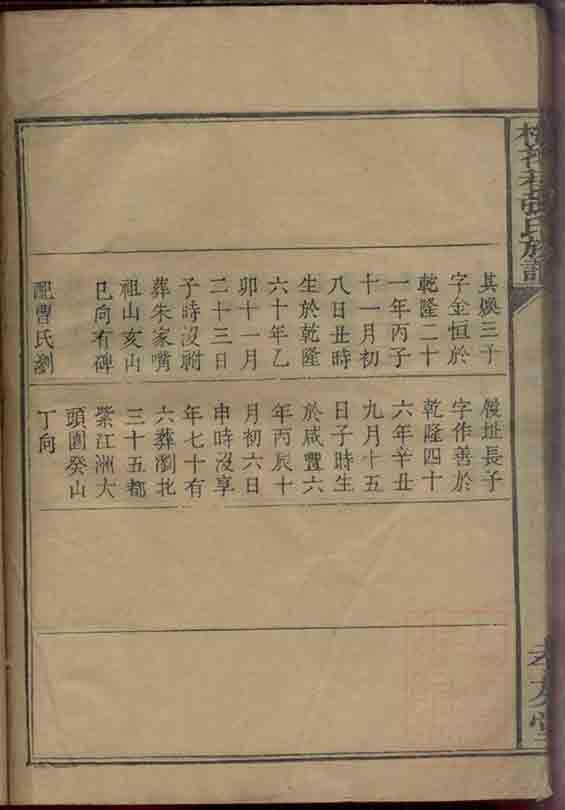 張氏族譜
孝友堂
其煥三子
字金恒於
乾隆二十
一年丙子
十一月初
八日丑時
生於乾隆
六十年乙
卯十一月
二十三日
子時沒祔
葬朱家嘴
祖山亥山
巳向有碑
配曹氏瀏
履址長子
字作善於
乾隆四十
六年辛丑
九月十五
日子時生
於咸豐六
年丙辰十
月初六日
申時沒享
年七十有
六葬瀏北
三十五都
紫江洲大
頭園癸山
丁向